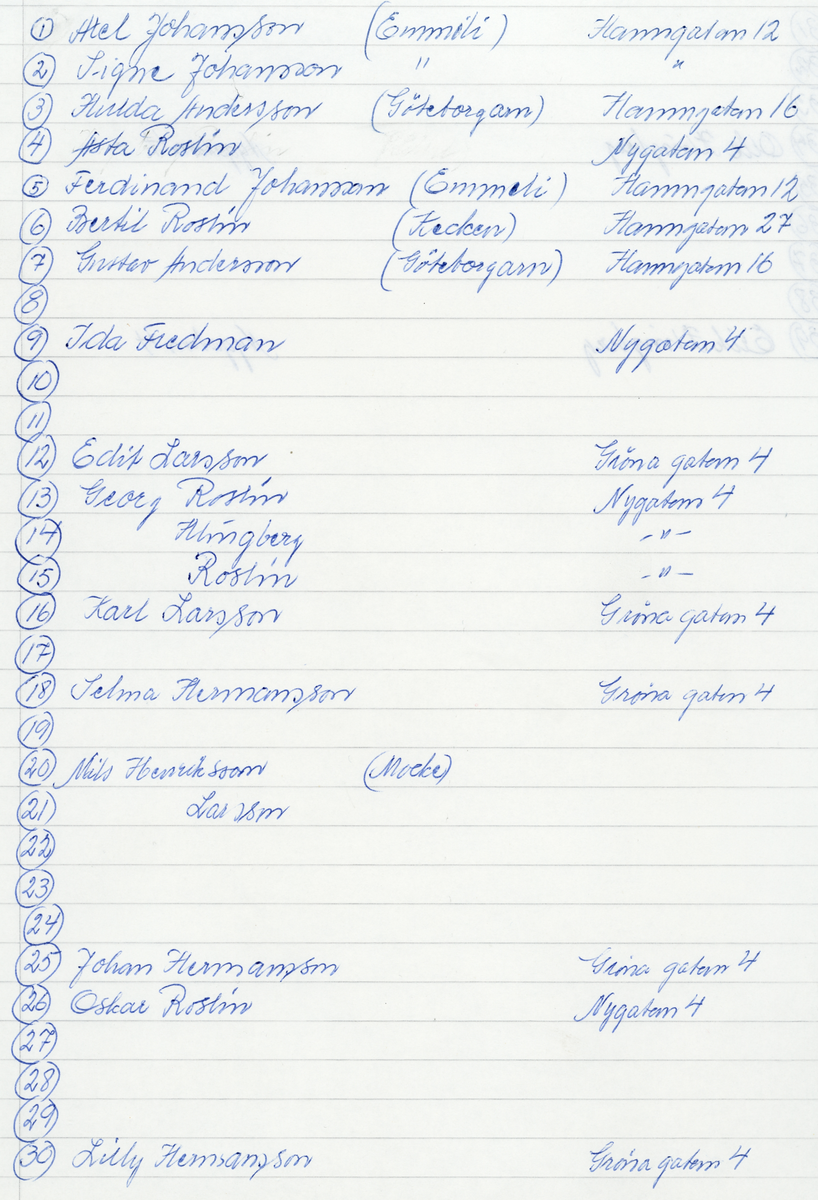 1 Axel Johansson (Emmeli) Hamngatan 12
2 Signe Johansson " "
3 Hulda Andersson (Göteborgarn) Hamngatan 16
4 Asta Roslin Nygatan 4
5 Ferdinand Johansson (Emmeli) Hamngatan 12
6 Bertil Roslin (Kecken) Hamngatan 27
7 Gustav Andersson (Göteborgarn) Hamngatan 16
8
9 Ida Fredman Nygatan 4
10
11
12 Edit Larsson Gröna gatan 4
13 Georg Roslin Nygatan 4
14 Klingberg -"-
15 Roslin -"-
16 Karl Larsson Gröna gatan 4
17
18 Selma Hermansson Gröna gatan 4
19
20 Nils Henriksson (Mocke)
21 Larsson
22
23
24
25 Johan Hermansson Gröna gatan 4
26 Oskar Roslin Nygatan 4
27
28
29
30 Lilly Hermansson Gröna gatan 4